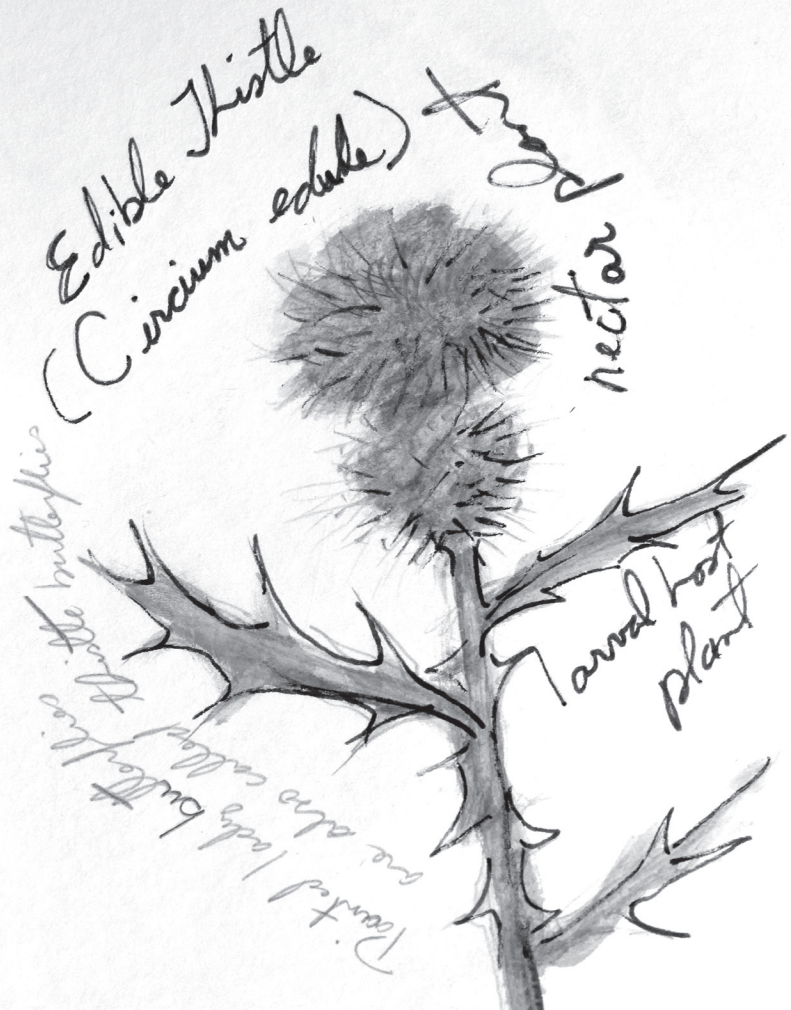 Edible Thistle
(Circium edule)
nectar plant
larval host
plant
Painted lady butterflies
are also called thistle butterflies